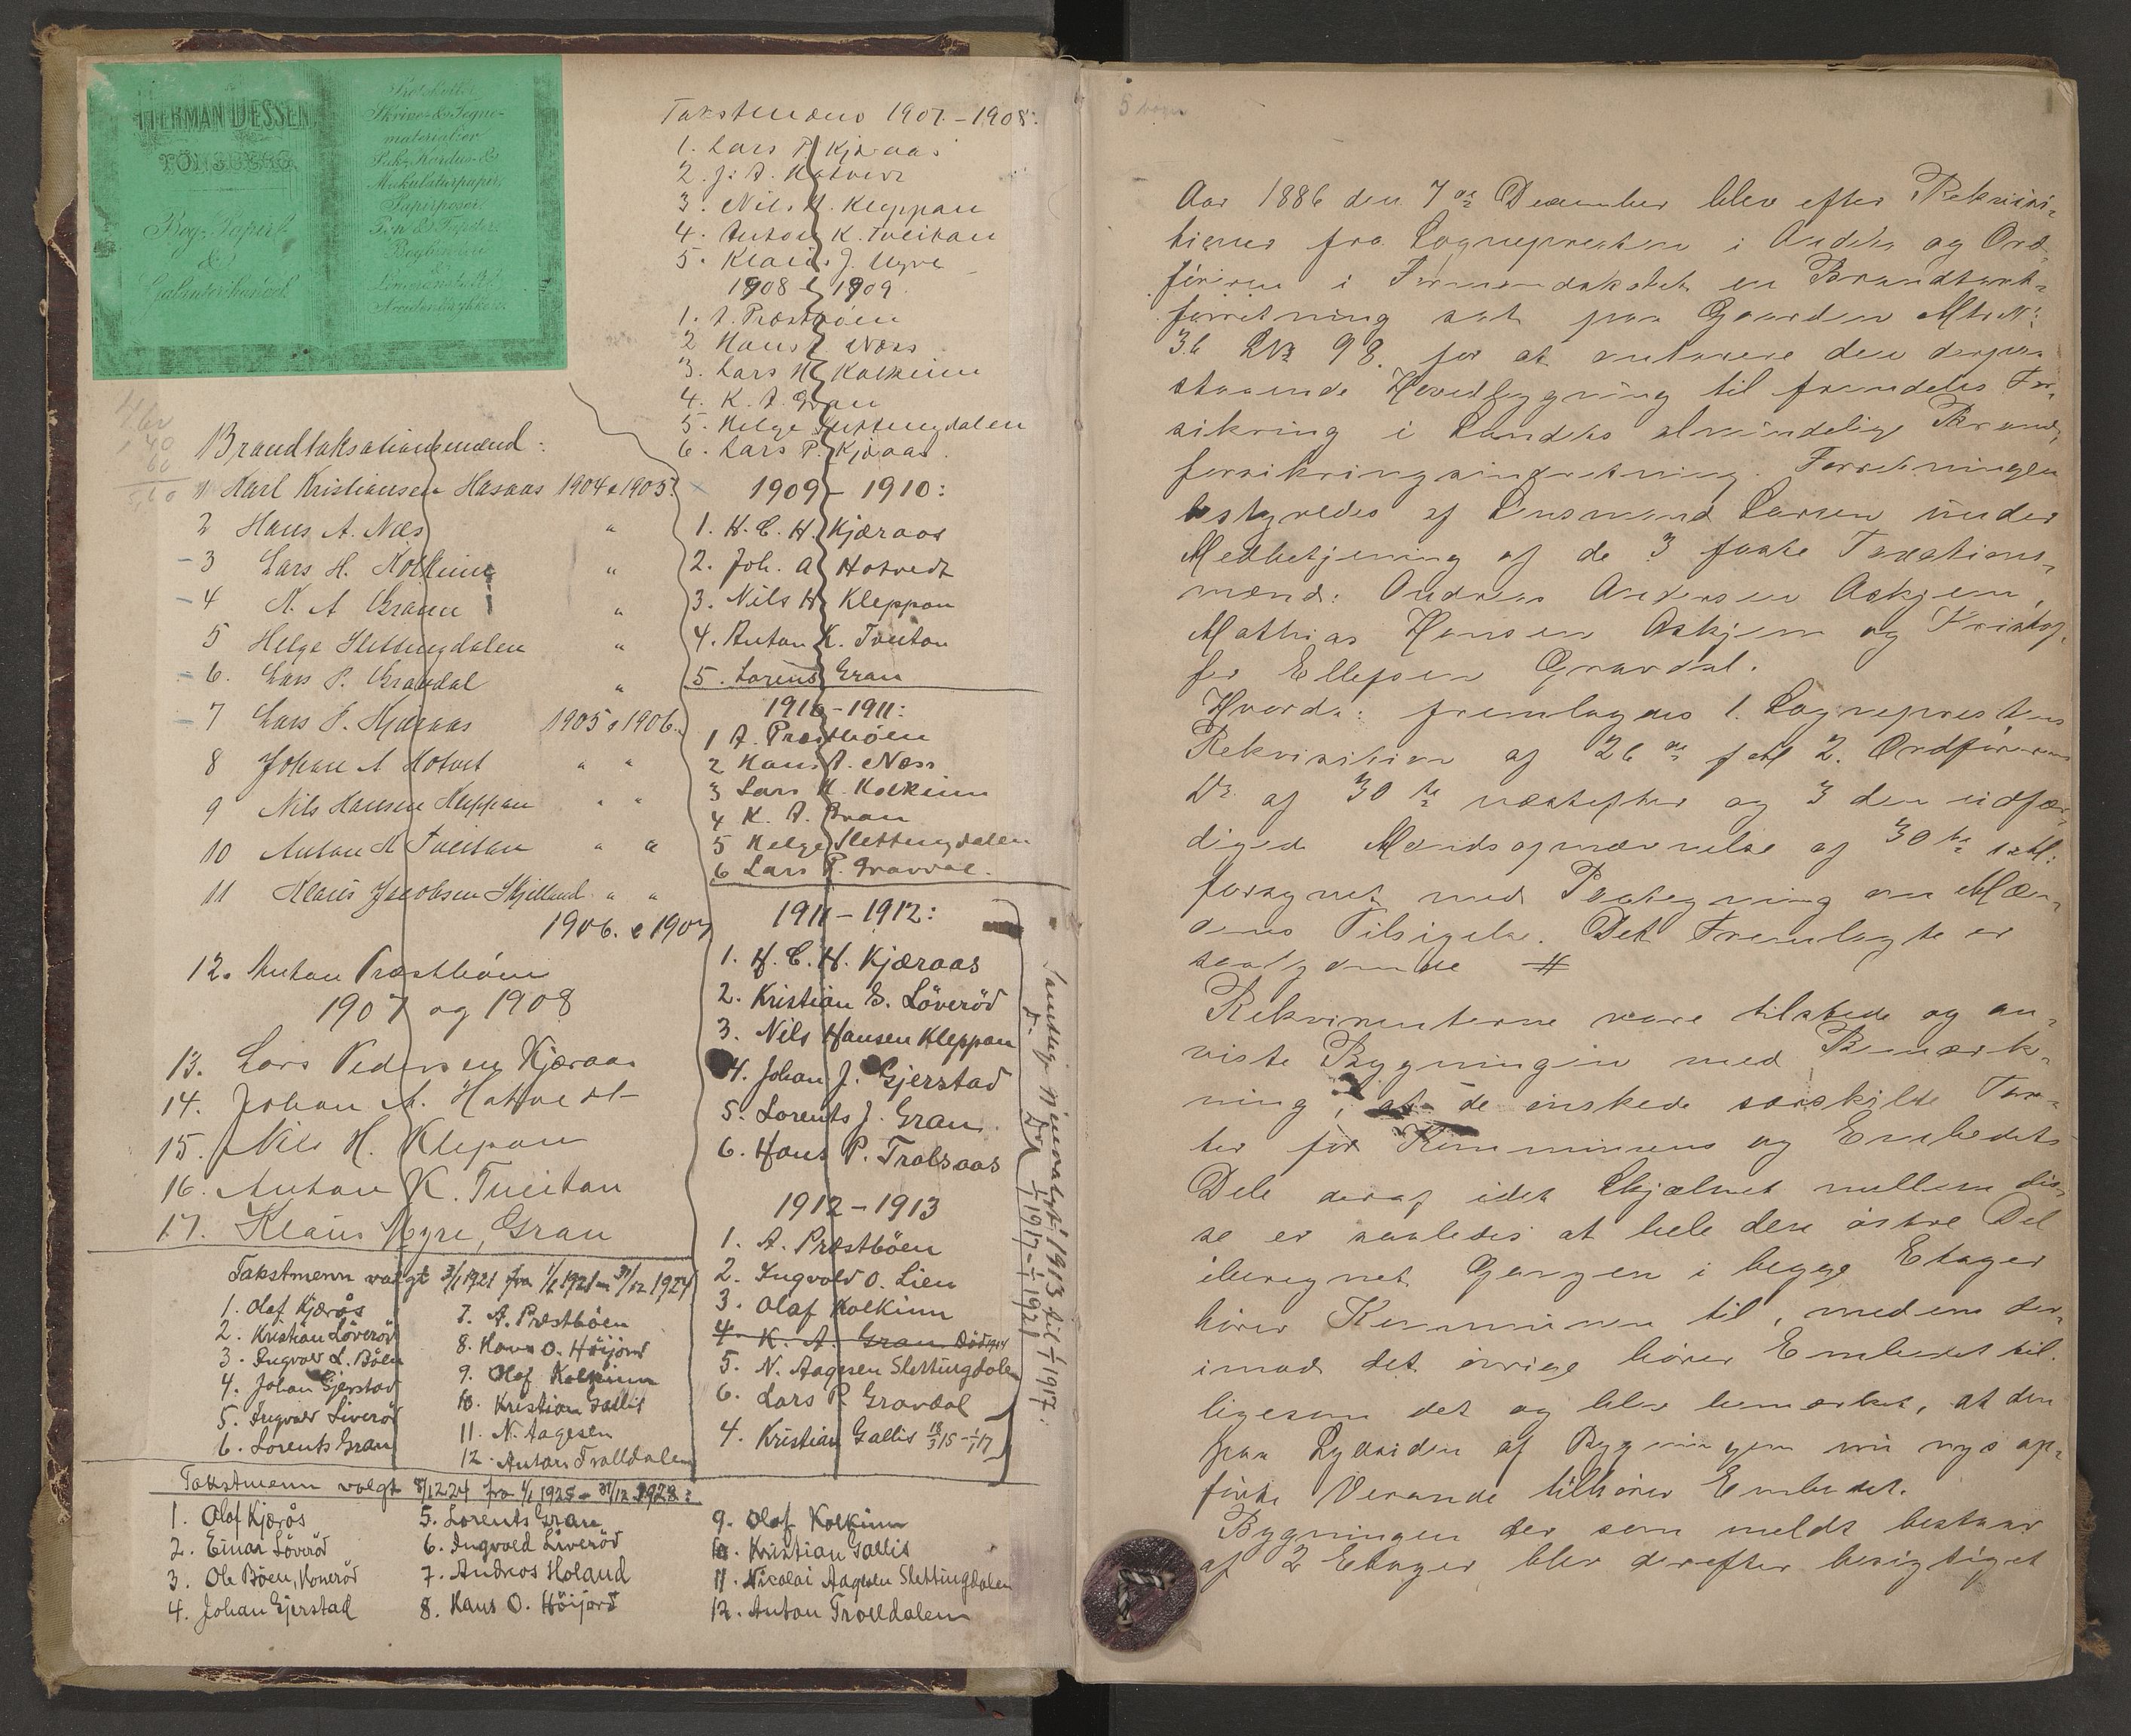 HERMAN DESSEN
TÖNSBERG
Bog-, Papir-
&
Galanterihandel.
Protokoller
Skrive- & Tegne-
materialier
Pak-, Kardus- &
Makulaturpapir,
Papirposer.
Bogbinderi
Brandtaksationsmænd:
1 Karl Kristiansen Hasaas 1904 & 1905.
2 Hans A. Næs "
3 Lars H. Kolkinn "
4 K. A. Grann "
5 Helge Slettingdalen "
6. Lars P. Gravdal "
7 Lars P. Kjæraas 1905 & 1906.
8 Johan A. Hotvet " "
9 Nils Hansen Kleppan " "
10 Anton K Tveitan " "
11 Klaus Jacobsen Skjelland " "
1906. & 1907
12. Anton Præstbøen
1907 og 1908
13. Lars Pedersen Kjæraas
14. Johan A. Hotvedt
15. Nils H. Klepan
16. Anton K. Tveitan
17. Klaus Myre, Gran
Takstmenn valgt 3/1 1921 fra 1/1 1921 – 31/12 1924
1. Olaf Kjærås
2. Kristian Löveröd
3. Ingvald L. Böen
4. Johan Gjerstad
5. Ingvald Liveröd
6. Lorents Gran
7. A. Præstböen
8. Hans O. Höijord
9. Olaf Kolkinn
10. Kristian Gallis
11. N. Aagesen
12. Anton Trolldalen
Takstmenn valgt 8/12 24 fra 1/1 1925 – 31/12 1928:
1. Olaf Kjærås
2. Einar Löveröd
3. Ole Böen, Koneröd
4. Johan Gjerstad
5. Lorents Gran
6. Ingvald Liveröd
7. Andreas Holand
8. Hans O. Höijord
9. Olaf Kolkinn
10. Kristian Gallis
11. Nicolai Aagesen Slettingdalen
12. Anton Trolldalen
Takstmænd 1907 – 1908:
1. Lars P. Kjæraas
2. J. A. Hotvedt
3. Nils H. Kleppan
4. Anton K. Tveitan
5. Klaus J. Myre
1908 – 1909
1. A. Præstbøen
2 Hans A. Næss
3. Lars H. Kolkinn
4. K. A. Gran
5. Helge Slettingdalen
6. Lars P. Kjæraas.
1909 – 1910:
1. H. C. H. Kjæraas
2. Joh. A. Hotvedt
3. Nils H. Kleppan
4. Anton K. Tveitan
5. Lorens Gran
1910 – 1911:
1 A. Præstbøen
2 Hans A. Næss
3 Lars H. Kolkinn
4 K. A. Gran
5 Helge Slettingdalen
6 Lars P. Gravdal.
1911 – 1912:
1. H. C. H. Kjæraas
2. Kristian G. Löveröd
3. Nils Hansen Kleppan
4. Johan J. Gjerstad
5. Lorents J. Gran
6. Hans P. Trolsaas
1912 – 1913
1. A. Præstböen
2. Ingvald O. Lien
3. Olaf Kolkinn
4. K. A. Gran Död 1914
5. N. Aagesen Slettingdalen
6. Lars P. Gravdal
4. Kristian Gallis 18/3 15 – 1/1 17
Samtlige gjenvalgt i 1913 til 1/1 1917.
Do. Do. 1/1 1917 – 1/1 1921
5
Aar 1886 den 7de December blev efter Rekvisi-
tioner fra Sognepresten i Andebu og Ord-
föreren i Formandskabet en Brandtaxt-
forretning sat paa Gaarden Mtr. No.
36 LNo 98. for at antaxere den derpaa
staaende Hovedbygning til fremdeles For-
sikring i Landets almindelige Brand-
forsikringsindretning. Forretningen
bestyredes af Lensmand Larsen under
Medbetjening af de 3 faste Taxations-
mænd: Andreas Andersen Askjem,
Mathias Hansen Askjem og Kristof-
fer Ellefsen Gravdal.
Hvorda: fremlagdes 1. Sogneprestens
Rekvisition af 26de f. M. 2. Ordförerens
Do. af 30te næstefter og 3 den udfær-
digede Mændsopnævnelse af 30te s. M.
forsynet med Paategning om Mæn-
denes Tilsigelse. Det Fremlagte er
saalydende #
Rekvirenterne vare tilstede og an-
viste Bygningen med Bemærk-
ning, at de önskede særskilte Tax-
ter for Kommunens og Embedets
Dele deraf idet Skjælnet mellem dis-
se er saaledes at hele den östre Del
iberegnet Gangen i begge Etager
hörer Kommunen til, medens der-
imod det övrige hörer Embedet til.
ligesom det og blev bemærket, at den
paa Sydsiden af Bygningen nu nys op-
förte Verande tilhörer Embedet.
Bygningen der som meldt bestaar
af 2 Etager blev derefter besigtiget